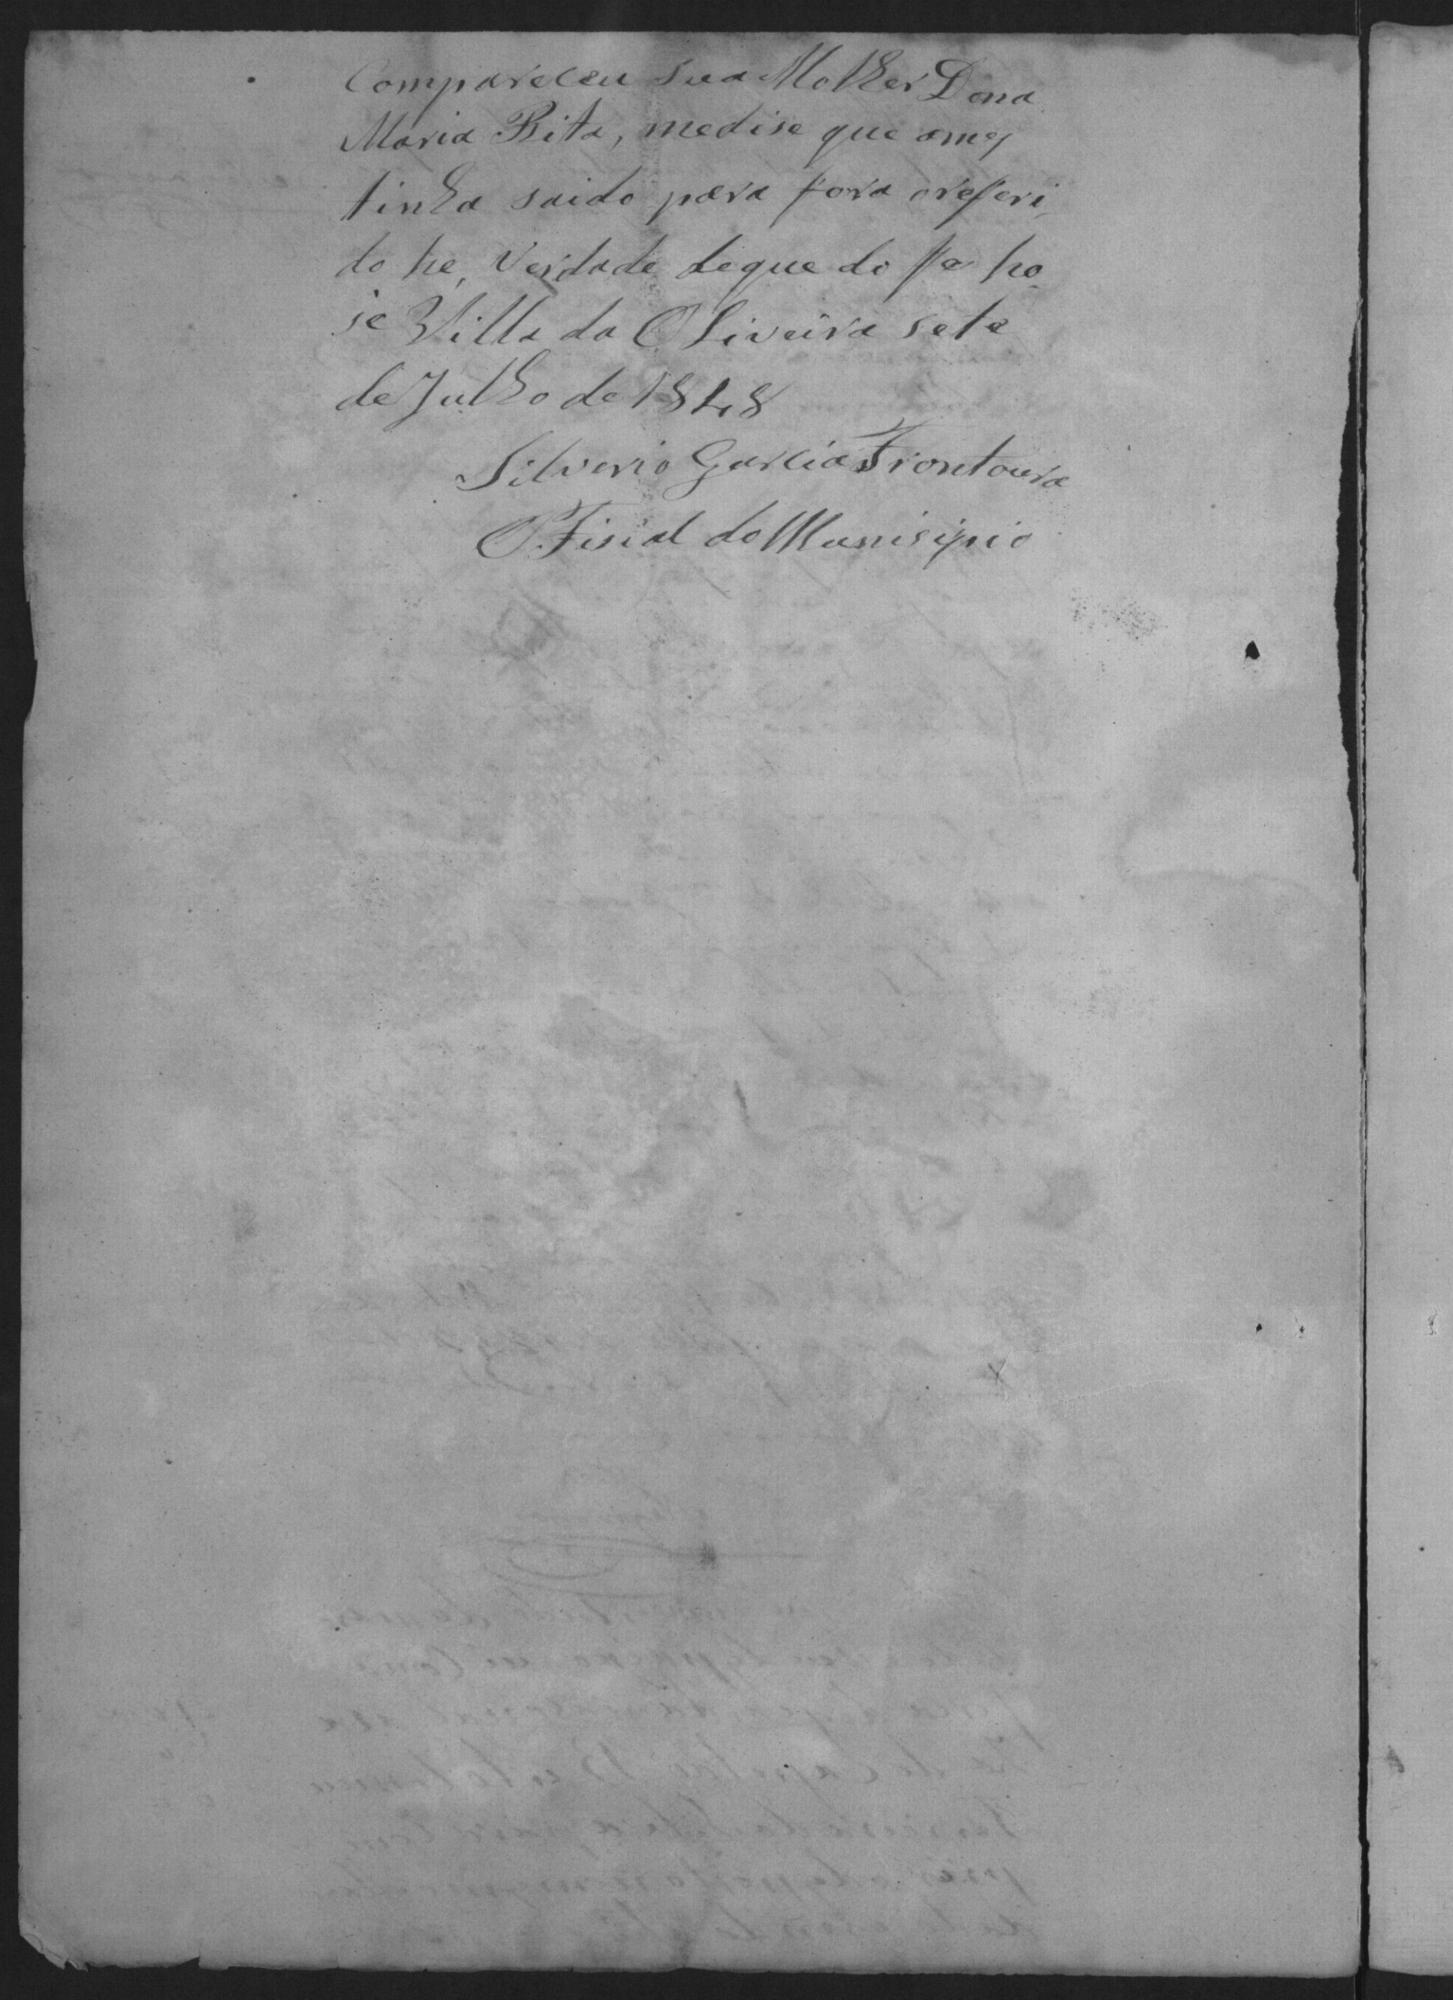 Compareceu sua Molher Dona
Maria Rita, medise que omes
tinha saido para fora oreferi
do he, Verdade deque do fe ho
je Villa da OLiveira sete
de Julho de 1848
Silverio Garcia Frontoura
O. Fisial do Munisipio